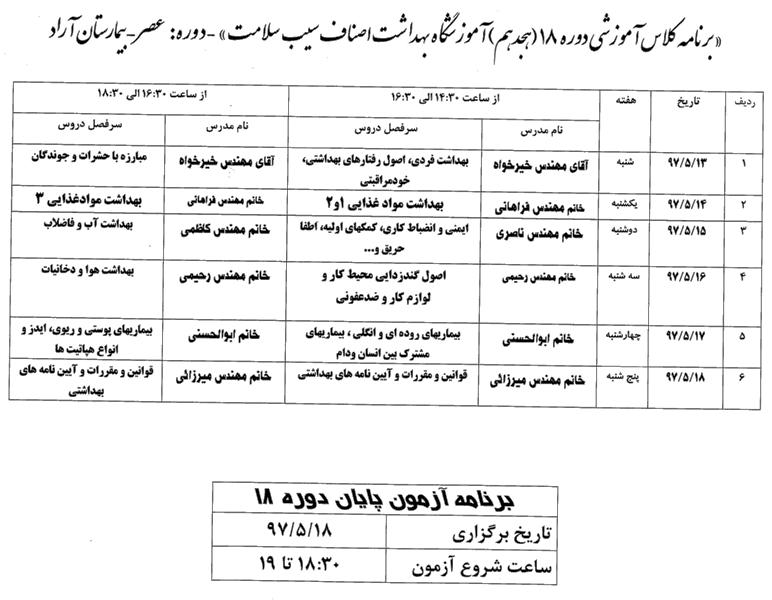 «برنامه کلاس آموزشی دوره ۱۸ (هجدهم) آموزشگاه بهداشت اصناف سیب سلامت» -دوره: عصر-بیمارستان آراد
ردیف تاریخ هفته از ساعت ۱۴:۳۰ الی ۱۶:۳۰ از ساعت ۱۶:۳۰ الی ۱۸:۳۰
نام مدرس سرفصل دروس نام مدرس سرفصل دروس
۱ ۹۷/۵/۱۳ شنبه آقای مهندس خیرخواه بهداشت فردی، اصول رفتارهای بهداشتی، خودمراقبتی آقای مهندس خیرخواه مبارزه با حشرات و جوندگان
۲ ۹۷/۵/۱۴ یکشنبه خانم مهندس فراهانی بهداشت مواد غذایی ۱و۲ خانم مهندس فراهانی بهداشت موادغذایی ۳
۳ ۹۷/۵/۱۵ دوشنبه خانم مهندس ناصری ایمنی و انضباط کاری، کمکهای اولیه، اطفا حریق و... خانم مهندس کاظمی بهداشت آب و فاضلاب
۴ ۹۷/۵/۱۶ سه شنبه خانم مهندس رحیمی اصول گندزدایی محیط کار و لوازم کار و ضدعفونی خانم مهندس رحیمی بهداشت هوا و دخانیات
۵ ۹۷/۵/۱۷ چهارشنبه خانم ابوالحسنی بیماریهای روده ای و انگلی، بیماریهای مشترک بین انسان ودام خانم ابوالحسنی بیماریهای پوستی و ریوی، ایدز و انواع هپاتیت ها
۶ ۹۷/۵/۱۸ پنج شنبه خانم مهندس میرزائی قوانین و مقررات و آیین نامه های بهداشتی خانم مهندس میرزائی قوانین و مقررات و آیین نامه های بهداشتی
برنامه آزمون پایان دوره ۱۸
تاریخ برگزاری ۹۷/۵/۱۸
ساعت شروع آزمون ۱۸:۳۰ تا ۱۹